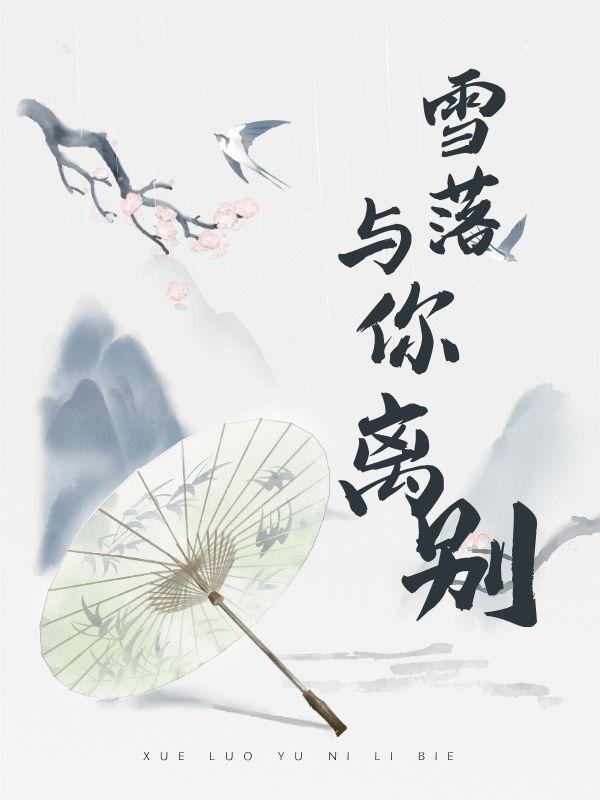 雪落
与你
离别
XUE LUO YU NI LI BIE